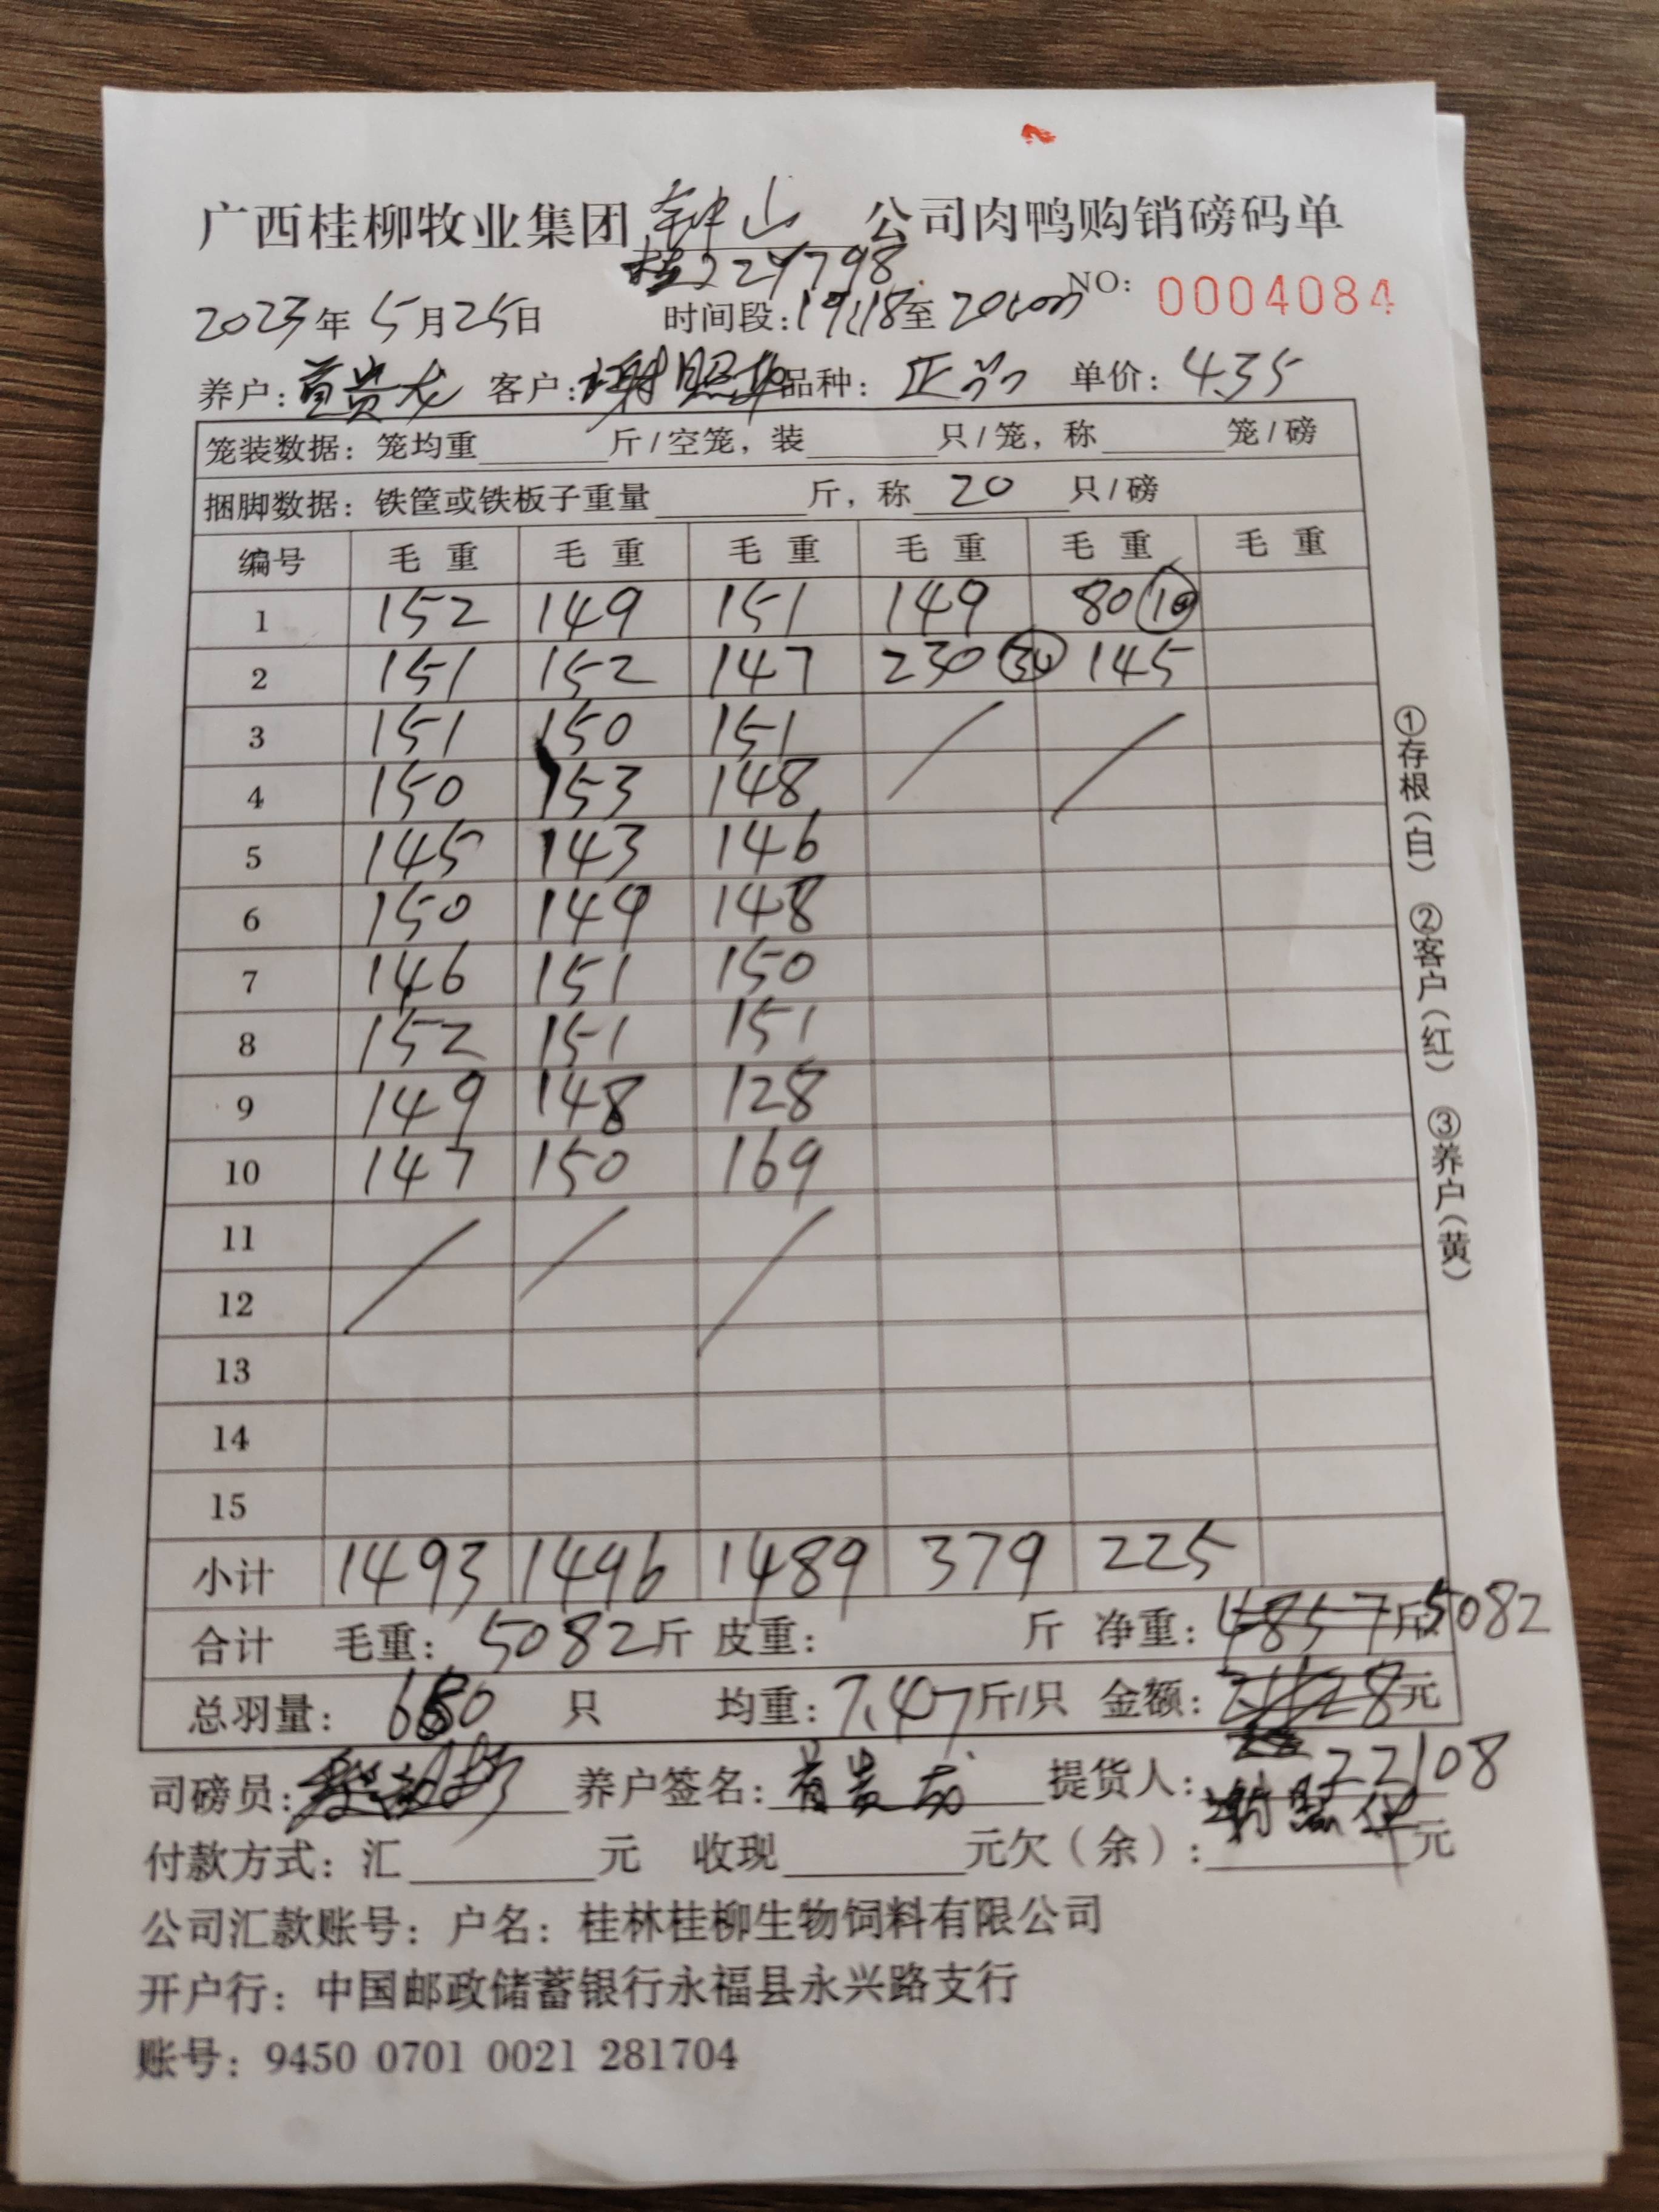 广西桂柳牧业集团 钟山 公司肉鸭购销磅码单
桂J24798
NO: 0004084
2023年5月25日 时间段:19:18至20:00
养户: 客户:谢照华 品种: 单价:4.35
笼装数据: 笼均重 斤/空笼, 装 只/笼, 称 笼/磅
捆脚数据: 铁筐或铁板子重量 斤, 称 20 只/磅
编号 毛重 毛重 毛重 毛重 毛重 毛重
1 152 149 151 149 80 10
2 151 152 147 230 30 145
3 151 150 151
4 150 153 148
5 145 143 146
6 150 149 148
7 146 151 150
8 152 151 151
9 149 148 128
10 147 150 169
11
12
13
14
15
小计 1493 1496 1489 379 225
合计 毛重: 5082斤 皮重: 斤 净重: 4857斤 5082
总羽量: 680 只 均重: 7.47斤/只 金额: 元
22108
司磅员: 养户签名: 提货人: 谢照华
付款方式: 汇 元 收现 元欠(余): 元
公司汇款账号: 户名: 桂林桂柳生物饲料有限公司
开户行: 中国邮政储蓄银行永福县永兴路支行
账号: 9450 0701 0021 281704
①存根(白) ②客户(红) ③养户(黄)